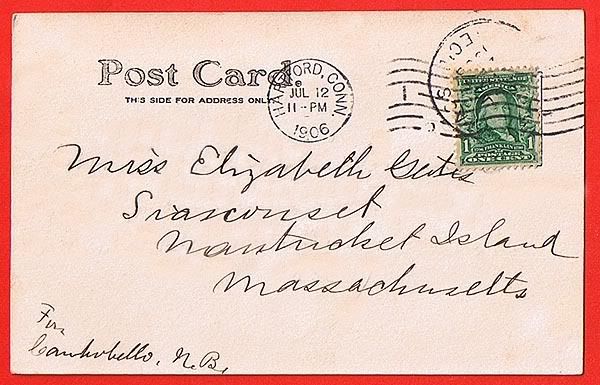 Post Card
THIS SIDE FOR ADDRESS ONLY
HARTFORD, CONN.
JUL 12
11-PM
1906
1
Miss Elizabeth Gates
Siasconset
Nantucket Island
Massachusetts